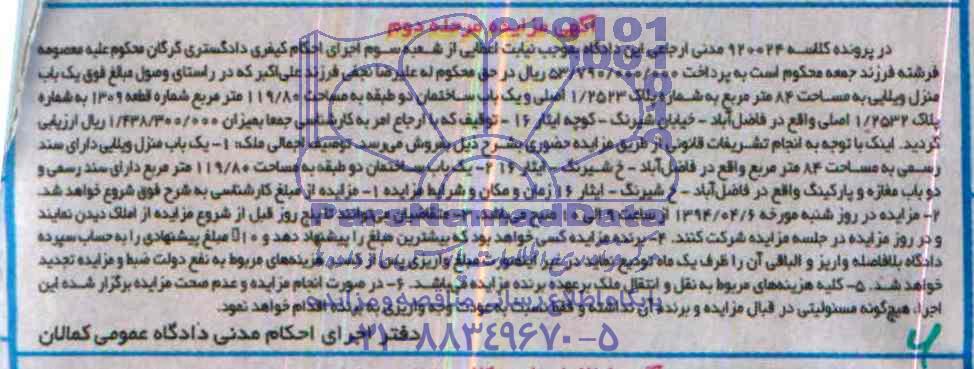 آگهی مزایده مرحله دوم
در پرونده کلاسه ۹۲۰۰۲۴ مدنی ارجاعی این دادگاه بموجب نیابت اعطایی از شعبه سوم اجرای احکام کیفری دادگستری گرگان محکوم علیه معصومه
فرشته فرزند جمعه محکوم است به پرداخت ریال در حق محکوم له علیرضا نجفی فرزند علی‌اکبر که در راستای وصول مبلغ فوق یک باب
منزل ویلایی به مساحت ۸۴ متر مربع به شماره پلاک ۱/۲۵۲۳ اصلی و یک باب ساختمان دو طبقه به مساحت ۱۱۹/۸۰ متر مربع شماره قطعه ۱۳۰۹ به شماره
پلاک ۱/۲۵۳۲ اصلی واقع در فاضل‌آباد - خیابان شیرنگ - کوچه ایثار ۱۶ - توقیف که با ارجاع امر به کارشناسی جمعا بمیزان ۱/۴۳۸/۳۰۰/۰۰۰ ریال ارزیابی
گردید. اینک با توجه به انجام تشریفات قانونی از طریق مزایده حضوری بشرح ذیل بفروش می‌رسد. توصیف اجمالی ملک: ۱- یک باب منزل ویلایی دارای سند
رسمی به مساحت ۸۴ متر مربع واقع در فاضل‌آباد - خ شیرنگ - ایثار ۱۶ ۲- یک باب ساختمان دو طبقه به مساحت ۱۱۹/۸۰ متر مربع دارای سند رسمی و
دو باب مغازه و پارکینگ واقع در فاضل‌آباد - خ شیرنگ - ایثار ۱۶ زمان و مکان و شرایط مزایده ۱- مزایده از مبلغ کارشناسی به شرح فوق شروع خواهد شد.
۲- مزایده در روز شنبه مورخه ۱۳۹۴/۰۴/۶ از ساعت ۹ الی ۱۰ صبح می‌باشد. ۳- متقاضیان می‌توانند تا پنج روز قبل از شروع مزایده از املاک دیدن نمایند
و در روز مزایده در جلسه مزایده شرکت کنند. ۴- برنده مزایده کسی خواهد بود که بیشترین مبلغ را پیشنهاد دهد و ۱۰ مبلغ پیشنهادی را به حساب سپرده
دادگاه بلافاصله واریز و الباقی آن را ظرف یک ماه تودیع نماید در غیر اینصورت مبلغ واریزی پس از کسر هزینه‌های مربوط به نفع دولت ضبط و مزایده تجدید
خواهد شد. ۵- کلیه هزینه‌های مربوط به نقل و انتقال ملک برعهده برنده مزایده می‌باشد. ۶- در صورت انجام مزایده و عدم صحت مزایده برگزار شده این
اجرا، هیچگونه مسئولیتی در قبال مزایده و برنده آن نداشته و فقط نسبت به عودت وجه واریزی به برنده اقدام خواهد نمود.
دفتر اجرای احکام مدنی دادگاه عمومی کمالان
پایگاه اطلاع رسانی مناقصه و مزایده
۰۲۱-۸۸۳۴۹۶۷۰-۵